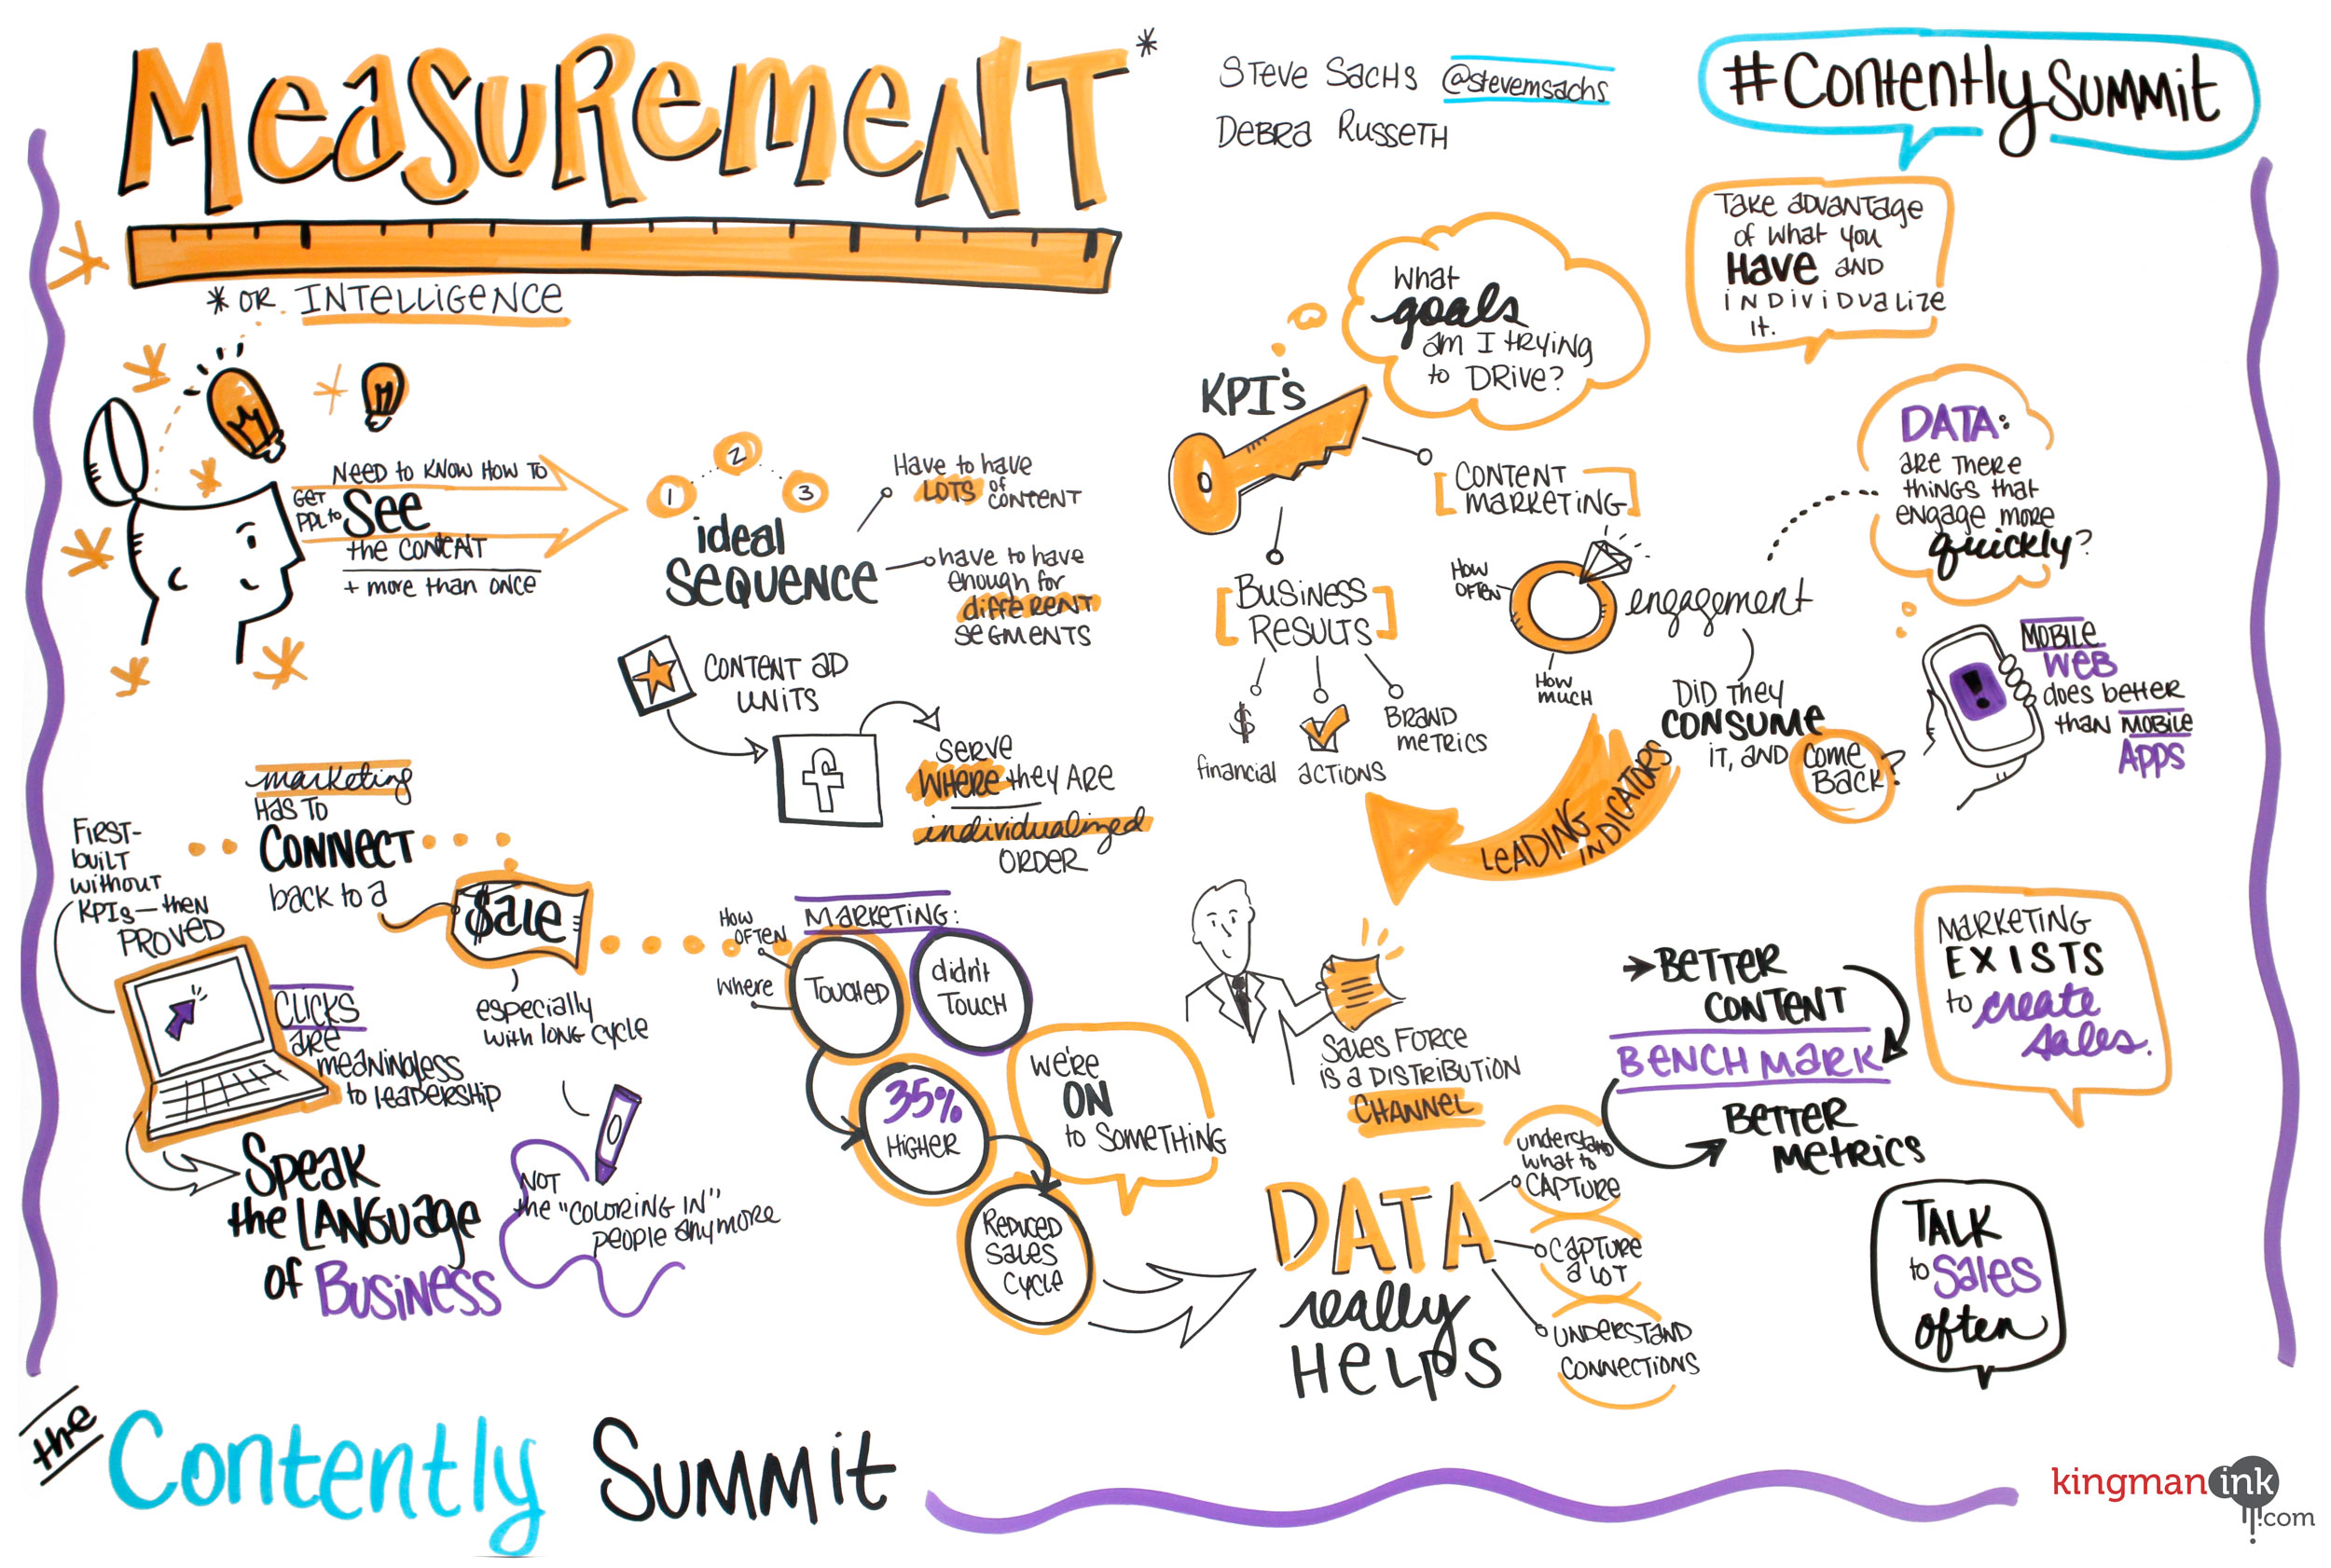 MEASUREMENT*
* OR INTELLIGENCE
STEVE SACHS @stevemsachs
DEBRA RUSSETH
#ContentlySummit
TAKE ADVANTAGE
OF WHAT YOU
HAVE AND
INDIVIDUALIZE
IT.
NEED to KNOW HOW TO
GET
PPL to
SEE
the CONTENT
+ more than once
1
2
3
ideal
SEQUENCE
Have to have
LOTS of
CONTENT
have to have
enough for
diffeRENT
SEGMENTS
CONTENT AD
UNITS
f
SERVE
WHERE they ARE
individualized
ORDER
KPI's
What
goals
am I tRYING
to DRive?
[CONTENT
MARKETING]
[BUSINESS
RESULTS]
$
financial
actions
BRAND
metrics
HOW
OFTEN
HOW
MUCH
engagement
DATA:
ARE THERE
things that
engage more
quickly?
DID they
CONSUME
IT, AND COME
BACK?
LEADING
INDICATORS
!
MOBILE
WEB
does better
than MOBILE
APPS
marketing
HAS TO
CONNECT
back to a
$ale
especially
with long cycle
FIRST-
built
without
KPIs — then
PROVED
CLICKS
are
meaningless
to leadership
Speak
the LANGUage
of BUSINESS
NOT
the "COLORING IN"
people anymore
MARKETING:
HOW
OFTEN
where
TOUCHED
didn't
TOUCH
35%
HIGHER
REDUCED
Sales
Cycle
We're
ON
to SOMETHING
Sales FORCE
is a DISTRIBUTION
CHANNEL
DATA
really
HELPS
understand
what to
CAPTURE
CAPTURE
a LOT
UNDERSTAND
CONNECTIONS
BETTER
CONTENT
BENCHMARK
BETTER
METRICS
MARKETING
EXISTS
to create
sales.
TALK
to Sales
often
the Contently SUMMit
kingman ink
.com